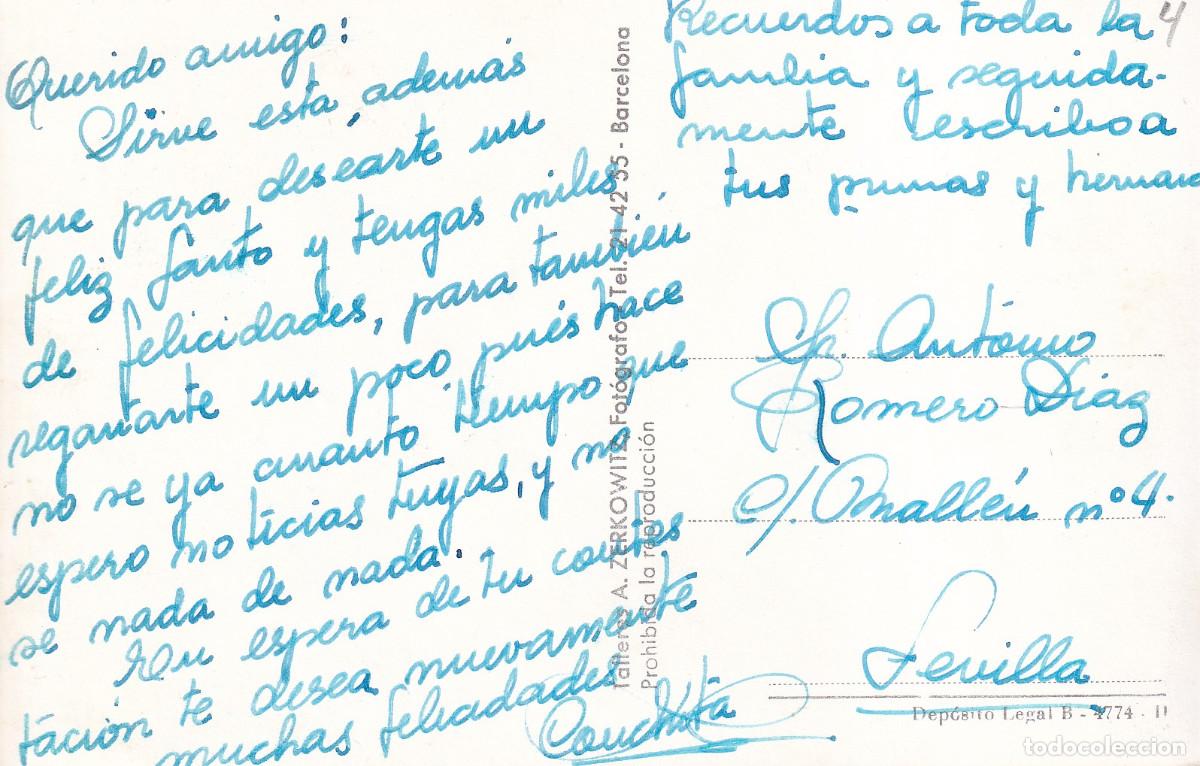 Querido amigo:
Sirve esta, además
que para desearte un
feliz Santo y tengas miles
de felicidades, para también
regañarte un poco pués hace
no se ya cuanto tiempo que
espero noticias tuyas, y no
se nada de nada.
En espera de tu contes
tación te desea nuevamente
muchas felicidades
Conchita
Recuerdos a toda la
familia y seguida-
mente escribo a
tus primas y herman
4
Talleres A. ZERKOWITZ Fotógrafo - Tel. 21 42 55 - Barcelona
Prohibida la reproducción
Sr. Antonio
Romero Díaz
c/. Mallén nº 4.
Sevilla
Depósito Legal B - 4774 - II
todocoleccion